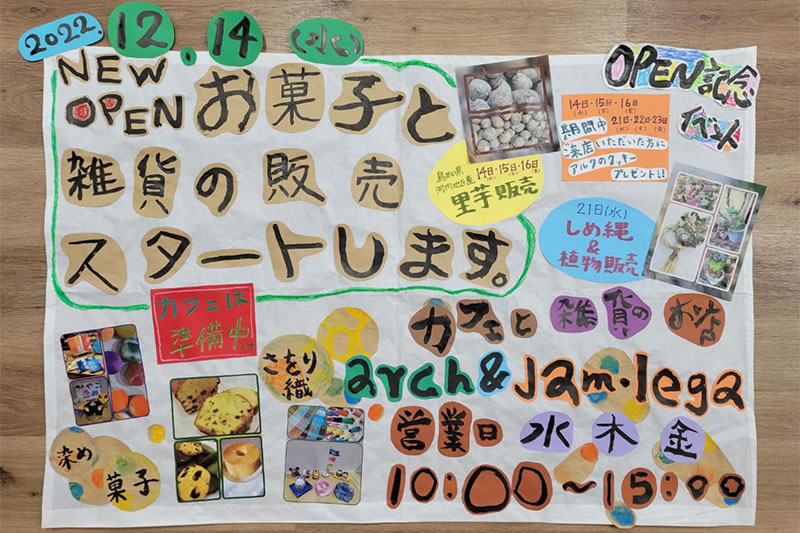 2022.12.14(水)
NEW OPEN お菓子と
雑貨の販売
スタートします。
OPEN記念
イベント
14日・15日・16日
(水) (木) (金)
21日・22日・23日
(水) (木) (金)
期間中
ご来店いただいた方に
アルクのクッキー
プレゼント!!
鳥取県
河内地区産
14日・15日・16日
里芋販売
21日(水)
しめ縄
&
植物販売
カフェは
準備中
カフェと 雑貨の お店
arch&Jam・lega
営業日 水 木 金
10:00〜15:00
さをり
織
染め
菓子